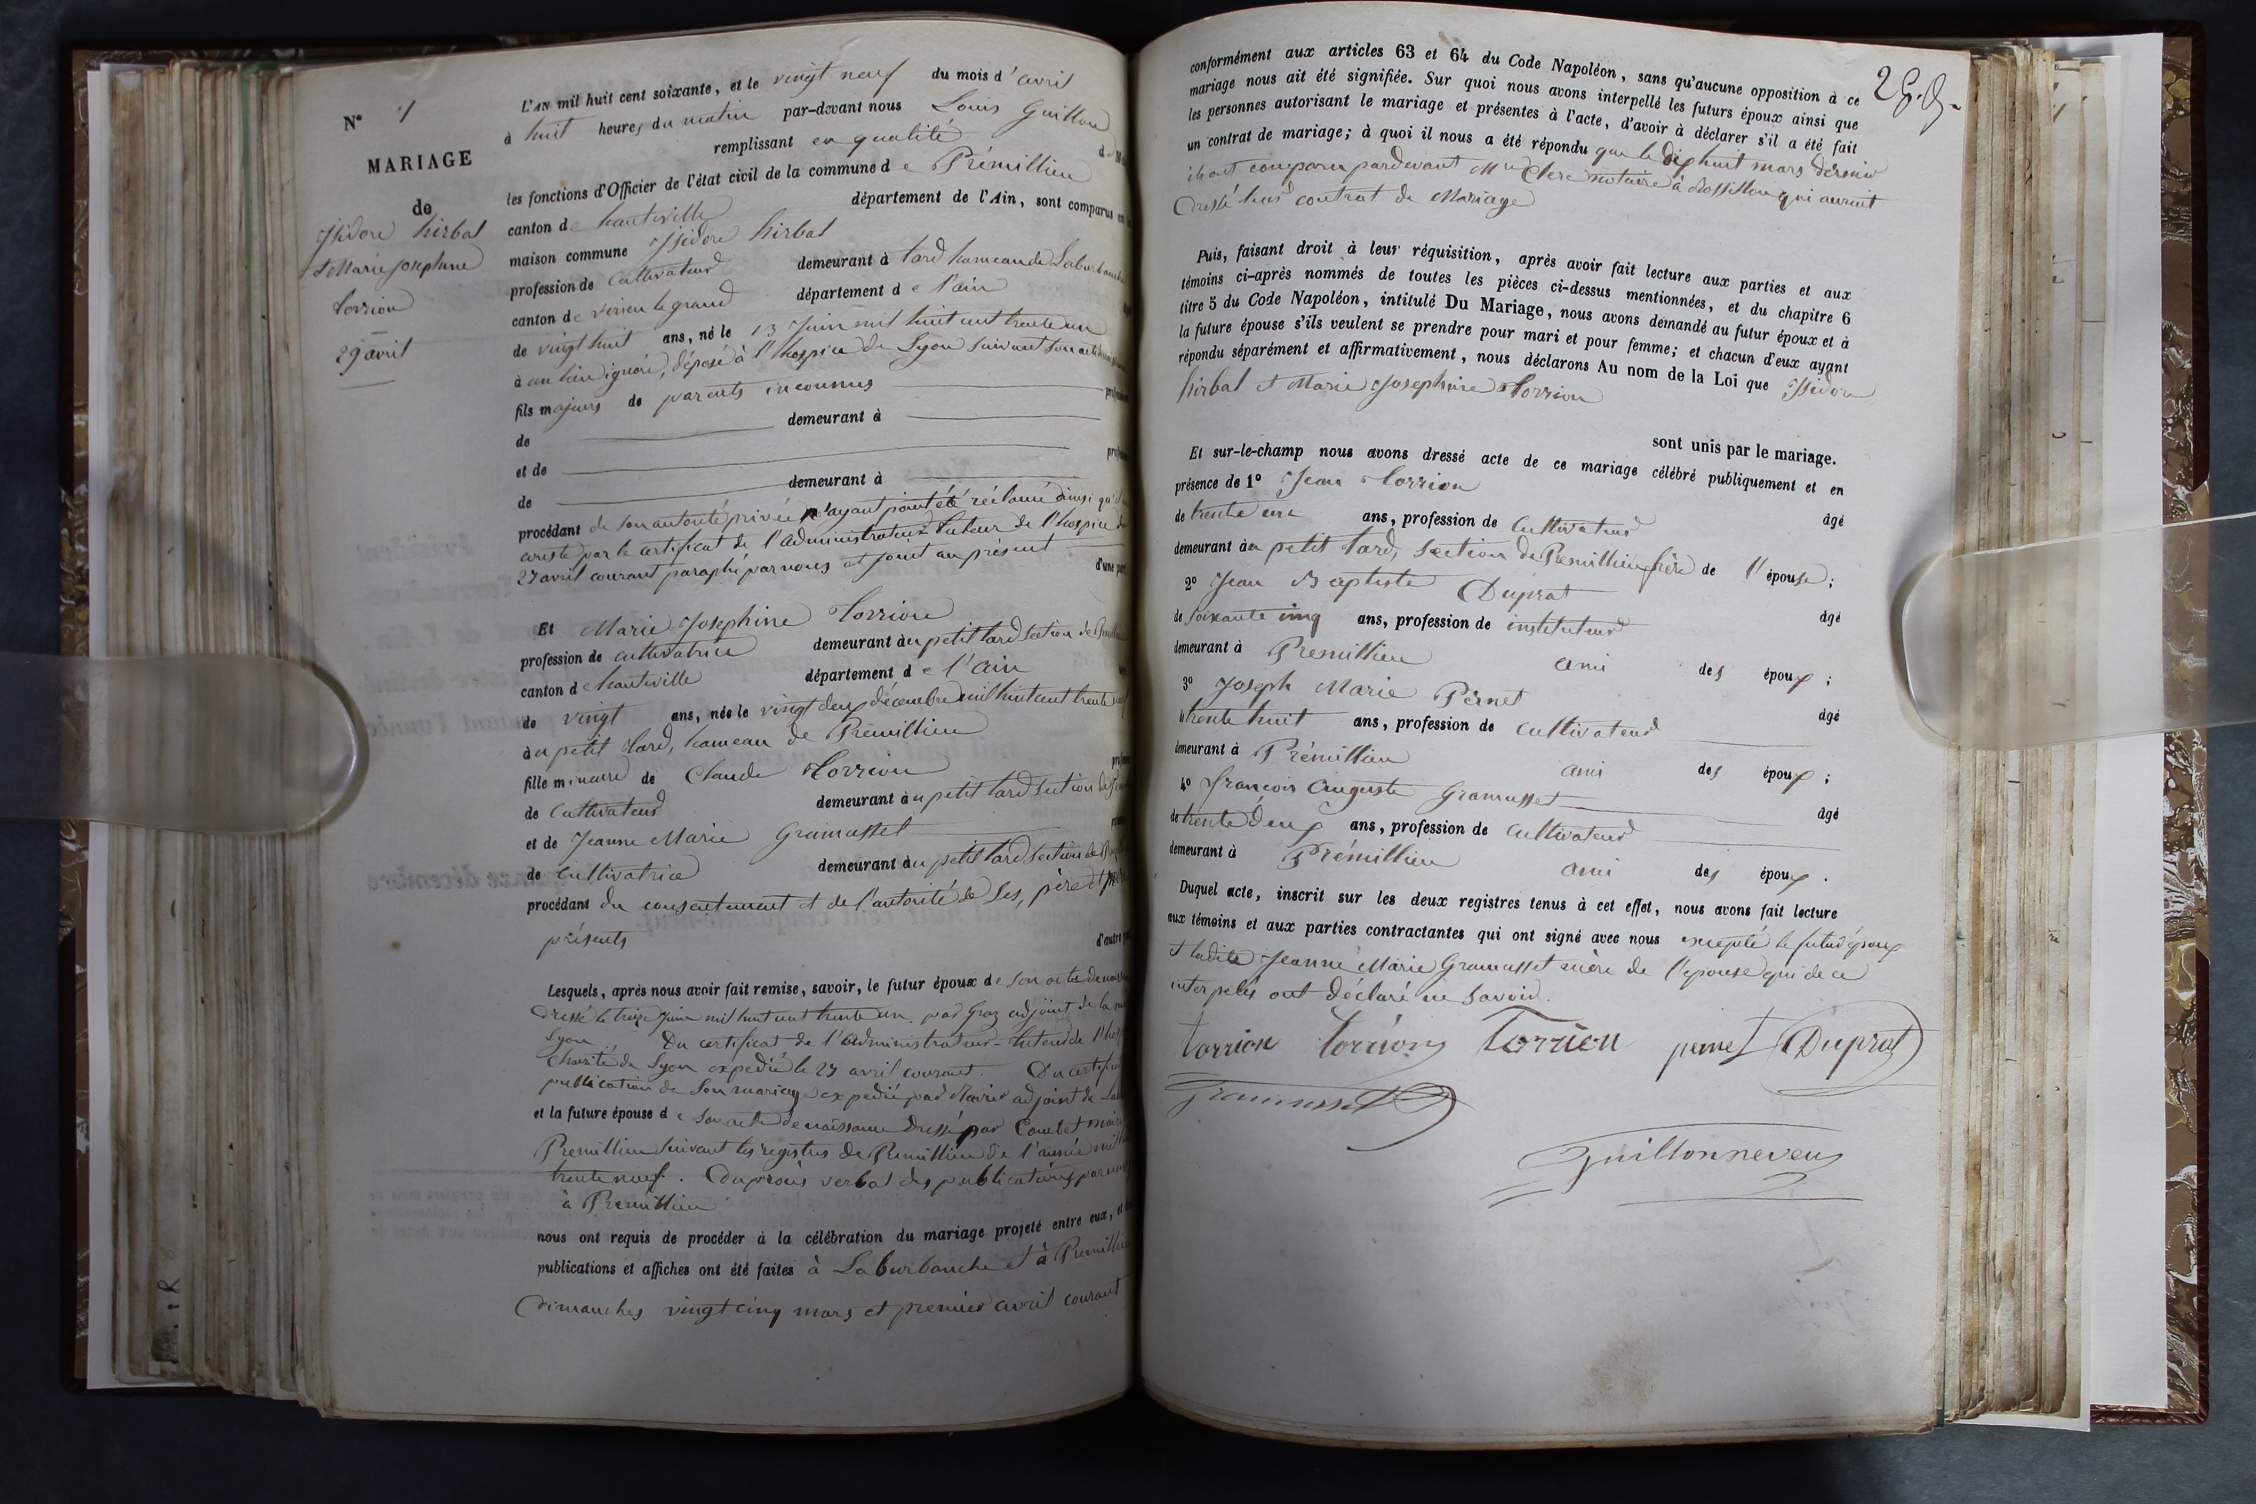 N° 1
MARIAGE
de
Isidore hirbal
et Marie Josephine
Torrion
29 avril
L'AN mil huit cent soixante, et le vingt neuf du mois d'avril
à huit heures du matin par-devant nous Louis Guillon
remplissant en qualité d
les fonctions d'Officier de l'état civil de la commune de Prémillieu
canton de hauteville département de l'Ain, sont comparus en
maison commune Isidore hirbal
profession de Cultivateur demeurant à tard hameau de Laburbanche
canton de virieu le grand département de l'ain
de vingt huit ans, né le 13 Juin mil huit cent trente un
à un lieu ignoré, déposé à l'hospice de Lyon suivant son acte
fils majeur de parents inconnus
de demeurant à
et de
de demeurant à
procédant de son autorité privée n'ayant point été réclamé ainsi qu'il
conste par le certificat de l'administrateur tuteur de l'hospice du
27 avril courant paraphé par nous et joint au présent d'une part
Et Marie Josephine Torrion
profession de cultivatrice demeurant au petit tard section de
canton d'hauteville département de l'ain
de vingt ans, née le vingt deux décembre mil huit cent trente neuf
au petit tard, hameau de Prémillieu
fille mineure de Claude Torrion
de Cultivateur demeurant au petit tard section de
et de Jeanne Marie Gramusset
de cultivatrice demeurant au petit tard section de
procédant du consentement et de l'autorité de ses, père et mère
présents d'autre
Lesquels, après nous avoir fait remise, savoir, le futur époux de son acte de
dressé le treize Juin mil huit cent trente un par Groz adjoint de la
Lyon Du certificat de l'administrateur-tuteur de
charité de Lyon expédié le 27 avril courant. Du certificat
publication de son mariage expédié par adjoint de
et la future épouse de son acte de naissance dressé par Courtet maire
Premillieu suivant les registres de Premillieu de l'année mil
trente neuf. Du procès verbal des publications par nous
à Premillieu
nous ont requis de procéder à la célébration du mariage projeté entre eux, et
publications et affiches ont été faites à Laburbanche et à Premillieu
dimanches vingt cinq mars et premier avril courant
conformément aux articles 63 et 64 du Code Napoléon, sans qu'aucune opposition à ce
mariage nous ait été signifiée. Sur quoi nous avons interpellé les futurs époux ainsi que
les personnes autorisant le mariage et présentes à l'acte, d'avoir à déclarer s'il a été fait
un contrat de mariage; à quoi il nous a été répondu que le dix huit mars dernier
ils ont comparu pardevant Me Clerc notaire à Rossillon qui aurait
dressé leur contrat de Mariage
Puis, faisant droit à leur réquisition, après avoir fait lecture aux parties et aux
témoins ci-après nommés de toutes les pièces ci-dessus mentionnées, et du chapitre 6
titre 5 du Code Napoléon, intitulé Du Mariage, nous avons demandé au futur époux et à
la future épouse s'ils veulent se prendre pour mari et pour femme; et chacun d'eux ayant
répondu séparément et affirmativement, nous déclarons Au nom de la Loi que Isidore
hirbal et Marie Josephine Torrion
sont unis par le mariage.
Et sur-le-champ nous avons dressé acte de ce mariage célébré publiquement et en
présence de 1° Jean Torrion
de trente un ans, profession de Cultivateur âgé
demeurant au petit tard, section de Premillieu frère de l'épouse;
2° Jean Baptiste Duprat
de soixante cinq ans, profession de instituteur âgé
demeurant à Premillieu ami des époux;
3° Joseph Marie Pernet
de trente huit ans, profession de cultivateur âgé
demeurant à Prémillieu ami des époux;
4° françois Auguste Gramusset
de trente deux ans, profession de cultivateur âgé
demeurant à Prémillieu ami des époux.
Duquel acte, inscrit sur les deux registres tenus à cet effet, nous avons fait lecture
aux témoins et aux parties contractantes qui ont signé avec nous excepté le futur époux
et ladite Jeanne Marie Gramusset mère de l'épouse qui de ce
interpelés ont déclaré ne savoir.
torrion torrion Torrion pernet Duprat
Gramusset
Guillon neveu